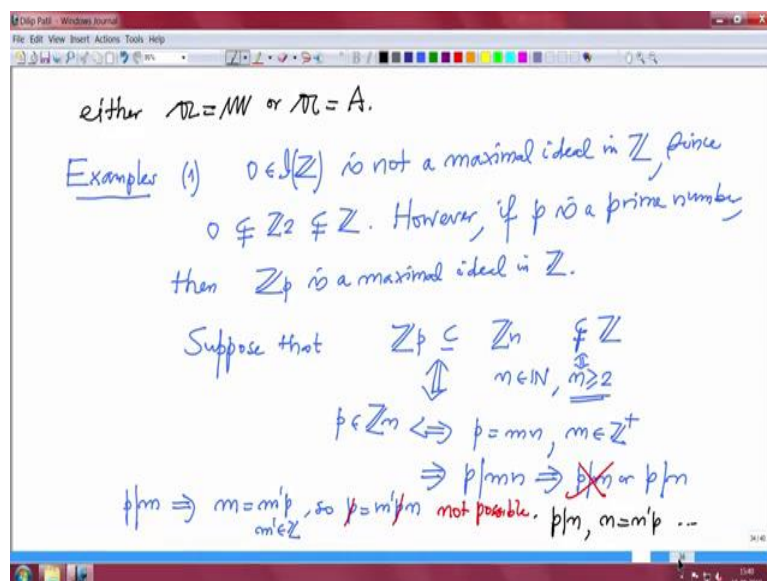 Dilip Patil - Windows Journal
File Edit View Insert Actions Tools Help
either 𝔫 = 𝔪 or 𝔫 = A.
Examples (1) 0 ∈ 𝓘(ℤ) is not a maximal ideal in ℤ, since
0 ⊊ ℤ2 ⊊ ℤ. However, if p is a prime number,
then ℤp is a maximal ideal in ℤ.
Suppose that ℤp ⊆ ℤn ⊊ ℤ
⇕ n ∈ ℕ, n ≥ 2
p ∈ ℤn ⟺ p = mn, m ∈ ℤ⁺
⇒ p|mn ⇒ p|m or p|n
p|m ⇒ m = m'p, so p = m'pn not possible. p|n, n = m'p ...
m' ∈ ℤ
34/40
15:40